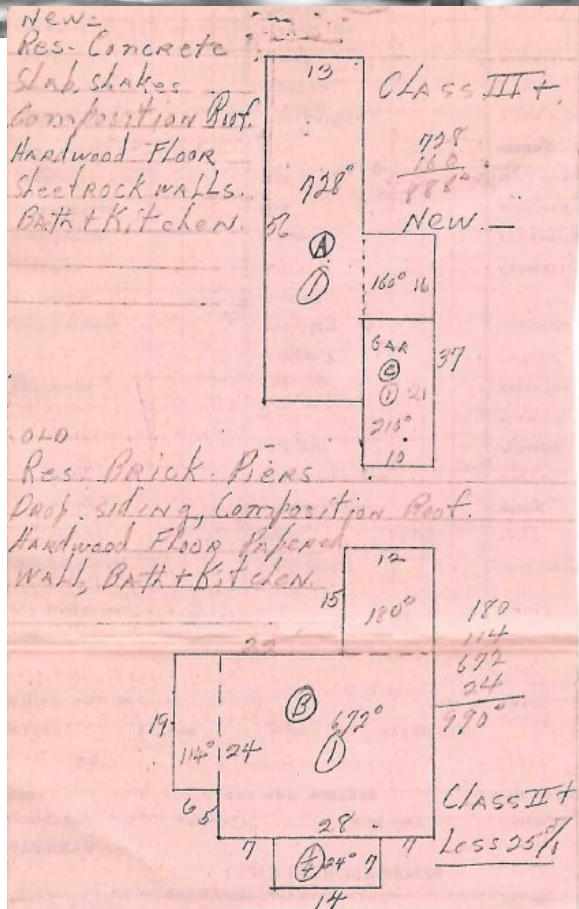 NEW-
Res-Concrete
Slab, shakes
Composition Roof.
Hardwood Floor
Sheetrock walls.
Bath + Kitchen.
13
CLASS III +
728°
728
160
888°
56
NEW.-
A
1
160° 16
GAR
C
1 21
37
210°
10
OLD
Res. Brick Piers
Drop siding, Composition Roof.
Hardwood Floor Papered
Wall, Bath + Kitchen.
12
15
180°
180
114
672
24
990°
22
B
19
114°
24
672°
1
6
5
28
CLASS II +
Less 25%
7
7
24°
7
14